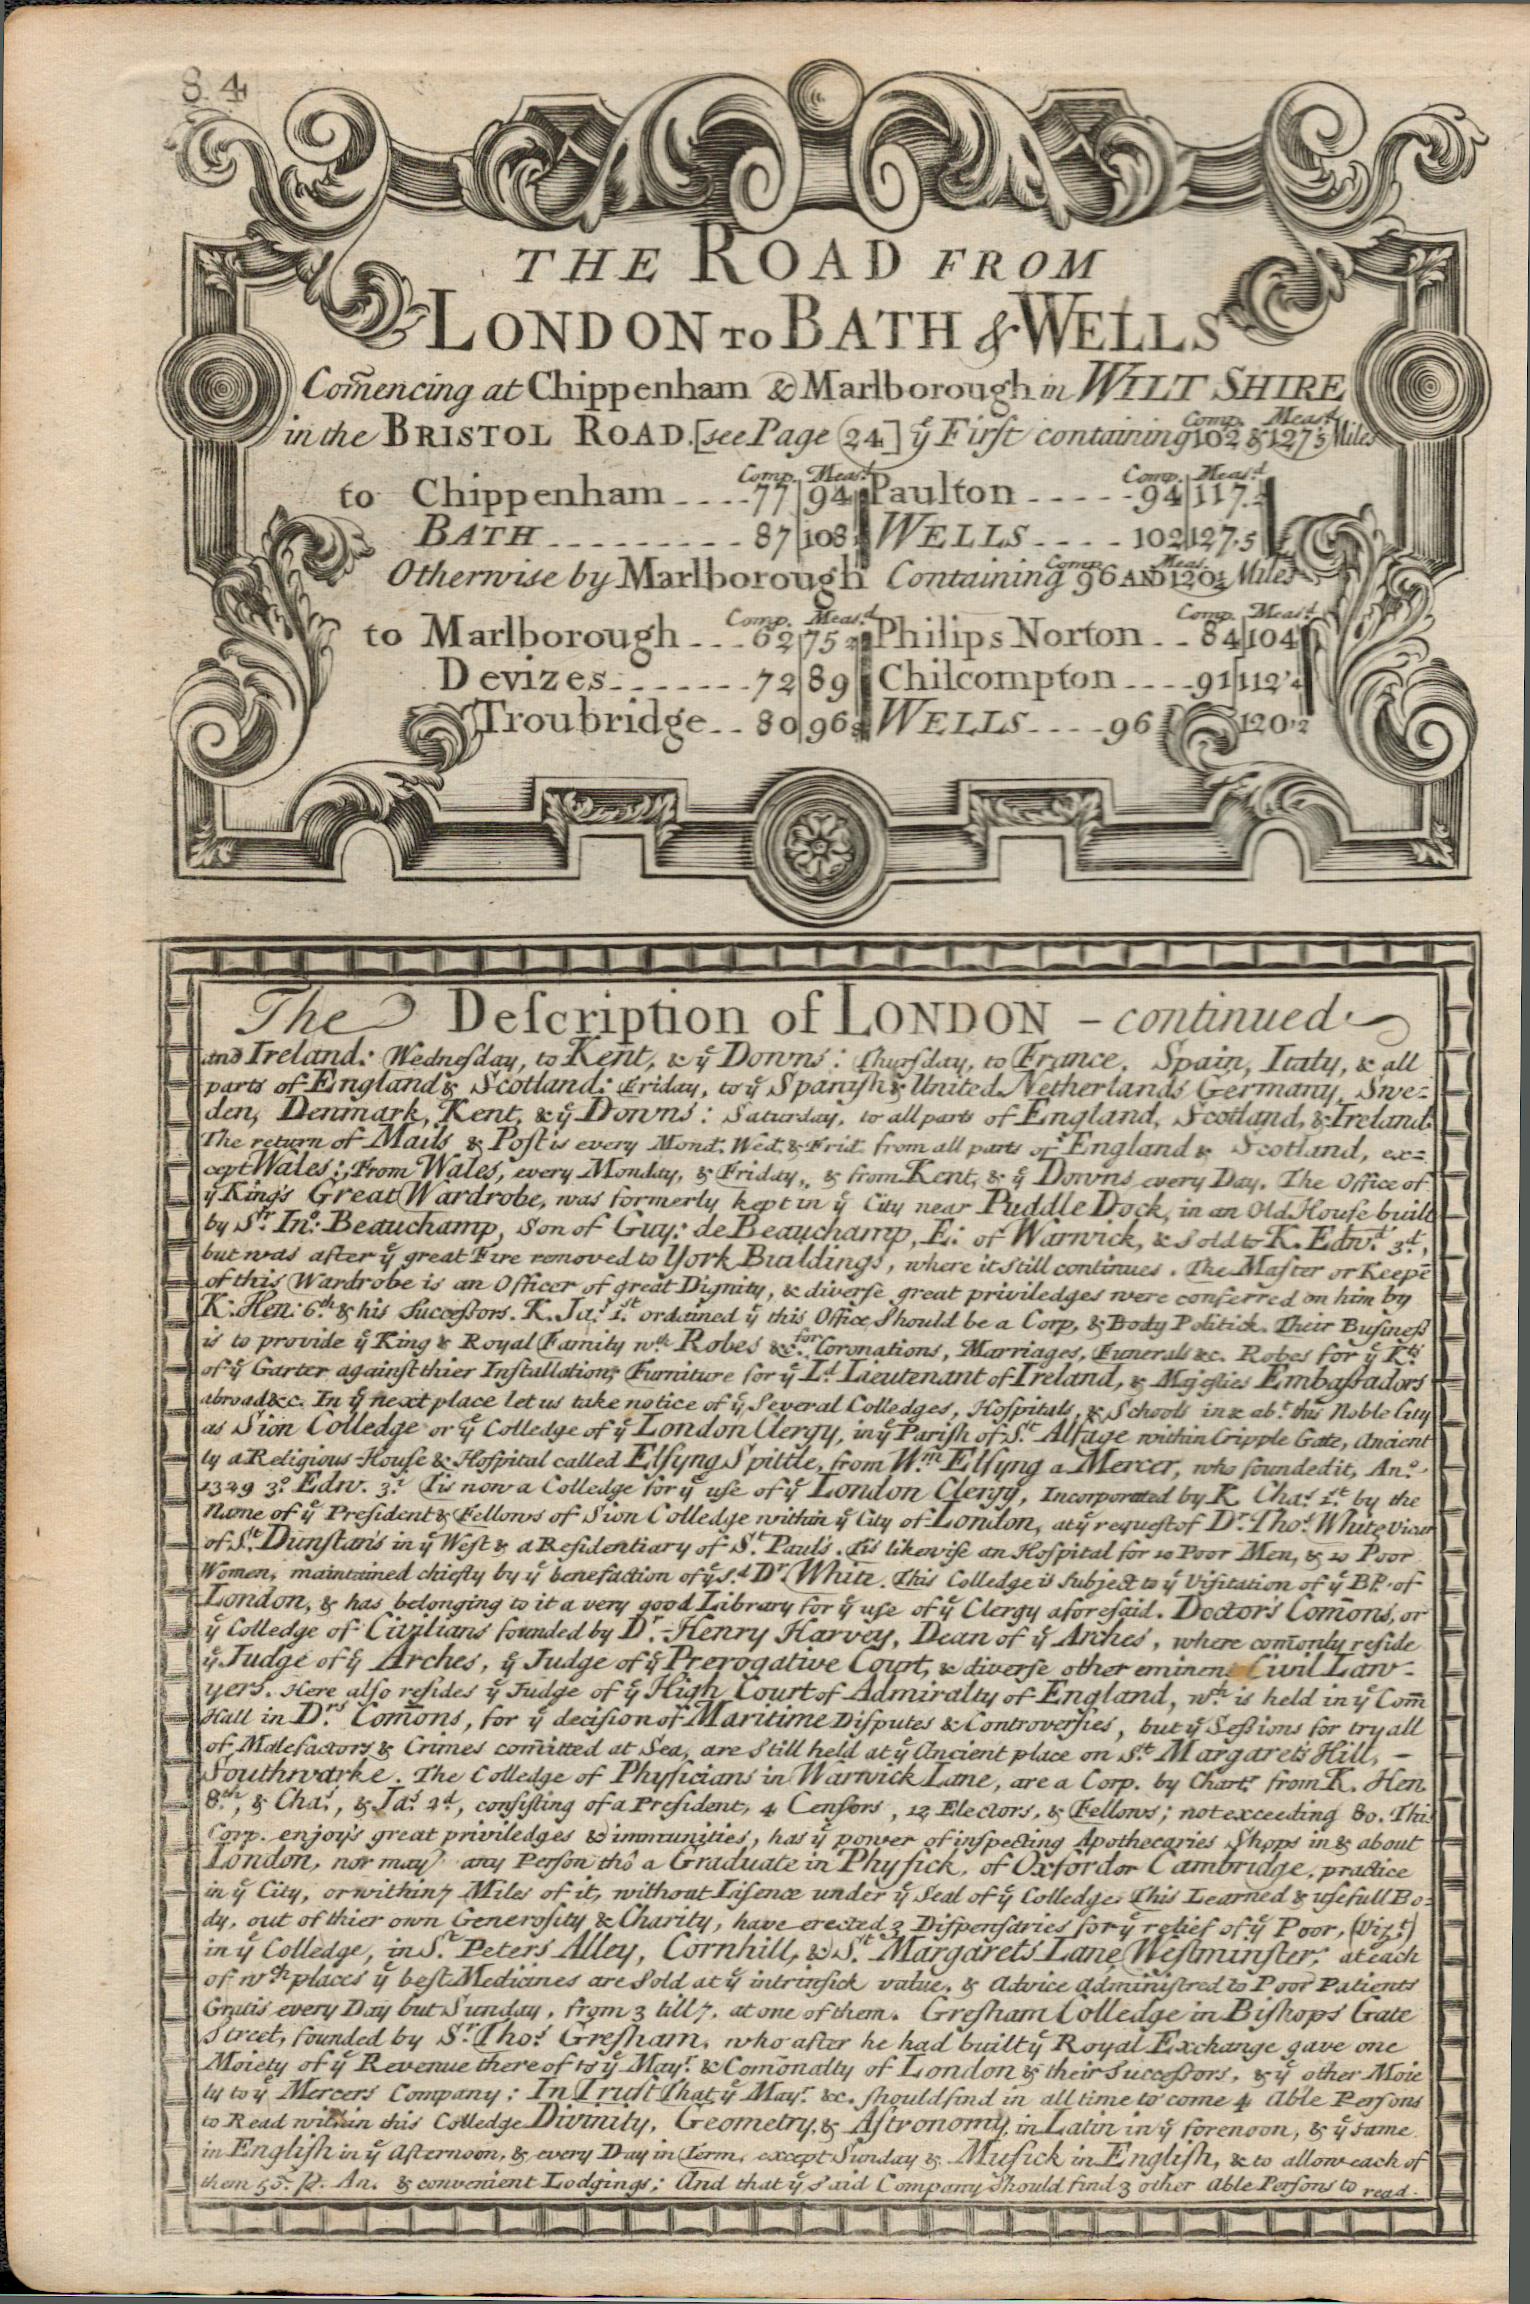 84
THE ROAD FROM
LONDON TO BATH & WELLS
Com̄encing at Chippenham & Marlborough in WILT SHIRE
in the BRISTOL ROAD. [see Page 24] ẙ Firſt containing Comp. 102 & Meas.d 127.5 Miles
Comp. Meas.d Comp. Meas.d
to Chippenham ---- 77 | 94 Paulton ----- 94 | 117.
BATH --------- 87 | 108 WELLS ---- 102 | 127.5
Otherwise by Marlborough Containing Comp. 96 AND Meas. 120½ Miles
Comp. Meas.d Comp. Meas.d
to Marlborough --- 62 | 75 2 Philips Norton -- 84 | 104
Devizes ------- 72 | 89 Chilcompton ---- 91 | 112'4
Troubridge -- 80 | 96 WELLS ---- 96 120'2
The Deſcription of LONDON - continued
and Ireland: Wedneſday, to Kent, & ẙ Downs: Thurſday, to France, Spain, Italy, & all
parts of England & Scotland: Friday, to ẙ Spaniſh & United Netherlands Germany, Swe=
den, Denmark, Kent, & ẙ Downs: Saturday, to all parts of England, Scotland, & Ireland.
The return of Mails & Poſt is every Mond. Wed. & Frid. from all parts of England & Scotland, ex=
cept Wales; From Wales, every Monday, & Friday, & from Kent, & ẙ Downs every Day. The Office of
ẙ King's Great Wardrobe, was formerly kept in ẙ City near Puddle Dock, in an Old Houſe built
by Sr. Jno: Beauchamp, Son of Guy: de Beauchamp, E: of Warwick, & Sold to K. Edw.d 3.d,
but was after ẙ great Fire removed to York Buildings, where it Still continues. The Maſter or Keepē
of this Wardrobe is an Officer of great Dignity, & diverſe great priviledges were conferred on him by
K: Hen: 6th & his Succeſſors. K. Ja.s 1st ordained ẙ this Office Should be a Corp, & Body Politick. Their Buſineſs
is to provide ẙ King & Royal Family wth Robes &c. for Coronations, Marriages, Funerals &c. Robes for ẙ Kts
of ẙ Garter against thier Inſtallation; Furniture for ẙ Ld. Lieutenant of Ireland, & Majeſties Embaſſadors
abroad &c. In ẙ next place let us take notice of ẙ Several Colledges, Hoſpitals, & Schools in & ab.t this Noble City
as Sion Colledge or ẙ Colledge of ẙ London Clergy, in ẙ Pariſh of St. Alfage within Cripple Gate, Ancient
ly a Religious Houſe & Hoſpital called Elſyng Spittle, from Wm. Elſyng a Mercer, who founded it, An.o
1329 3.o Edw. 3.d Tis now a Colledge for ẙ uſe of ẙ London Clergy, Incorporated by K Cha.s 1st by the
Name of ẙ Preſident & Fellows of Sion Colledge within ẙ City of London, at ẙ requeſt of Dr. Tho.s White Vicar
of St. Dunſtan's in ẙ Weſt & a Reſidentiary of St. Paul's. Tis likewiſe an Hoſpital for 10 Poor Men, & 10 Poor
Women, maintained chiefly by ẙ benefaction of ẙ S.d Dr. White. This Colledge is Subject to ẙ Viſitation of ẙ BP. of
London, & has belonging to it a very good Library for ẙ uſe of ẙ Clergy aforeſaid. Doctor's Com̄ons, or
ẙ Colledge of Civilians founded by Dr. Henry Harvey, Dean of ẙ Arches, where com̄only reſide
ẙ Judge of ẙ Arches, ẙ Judge of ẙ Prerogative Court, & diverſe other eminent Civil Law-
yers. Here alſo reſides ẙ Judge of ẙ High Court of Admiralty of England, wth. is held in ẙ Com̄
Hall in Drs Com̄ons, for ẙ deciſion of Maritime Diſputes & Controverſies, but ẙ Seſſions for tryall
of Malefactors & Crimes com̄itted at Sea, are Still held at ẙ Ancient place on St. Margaret's Hill, -
Southwarke. The Colledge of Phyſicians in Warwick Lane, are a Corp. by Chart.r from K. Hen.
8th, & Cha.s, & Ja.s 2d, conſiſting of a Preſident, 4 Cenſors, 12 Electors, & Fellows; not exceeding 80. This
Corp. enjoy's great priviledges & immunities, has ẙ power of inſpecting Apothecaries Shops in & about
London, nor may any Perſon tho' a Graduate in Phyſick, of Oxford or Cambridge, practice
in ẙ City, or within 7 Miles of it, without Liſence under ẙ Seal of ẙ Colledge. This Learned & uſefull Bo-
dy, out of thier own Generoſity & Charity, have erected 3 Diſpenſaries for ẙ relief of ẙ Poor, (Viz.t)
in ẙ Colledge, in St. Peters Alley, Cornhill, & St. Margaret's Lane Weſtminſter; at each
of wch places ẙ beſt Medicines are Sold at ẙ intrinſick value, & Advice Adminiſtred to Poor Patients
Gratis every Day but Sunday, from 3 till 7, at one of them. Greſham Colledge in Biſhops Gate
Street, founded by Sr. Tho.s Greſham, who after he had built ẙ Royal Exchange gave one
Moiety of ẙ Revenue there of to ẙ May.r & Com̄onalty of London & their Succeſſors, & ẙ other Moie
ty to ẙ Mercers Company: In Truſt That ẙ May.r &c. ſhould find in all time to come 4 Able Perſons
to Read within this Colledge Divinity, Geometry, & Aſtronomy, in Latin in ẙ forenoon, & ẙ Same
in Engliſh in ẙ Afternoon, & every Day in Term, except Sunday & Muſick in Engliſh, & to allow each of
them 50. p. An. & convenient Lodgings; And that ẙ Said Company Should find 3 other Able Perſons to read.